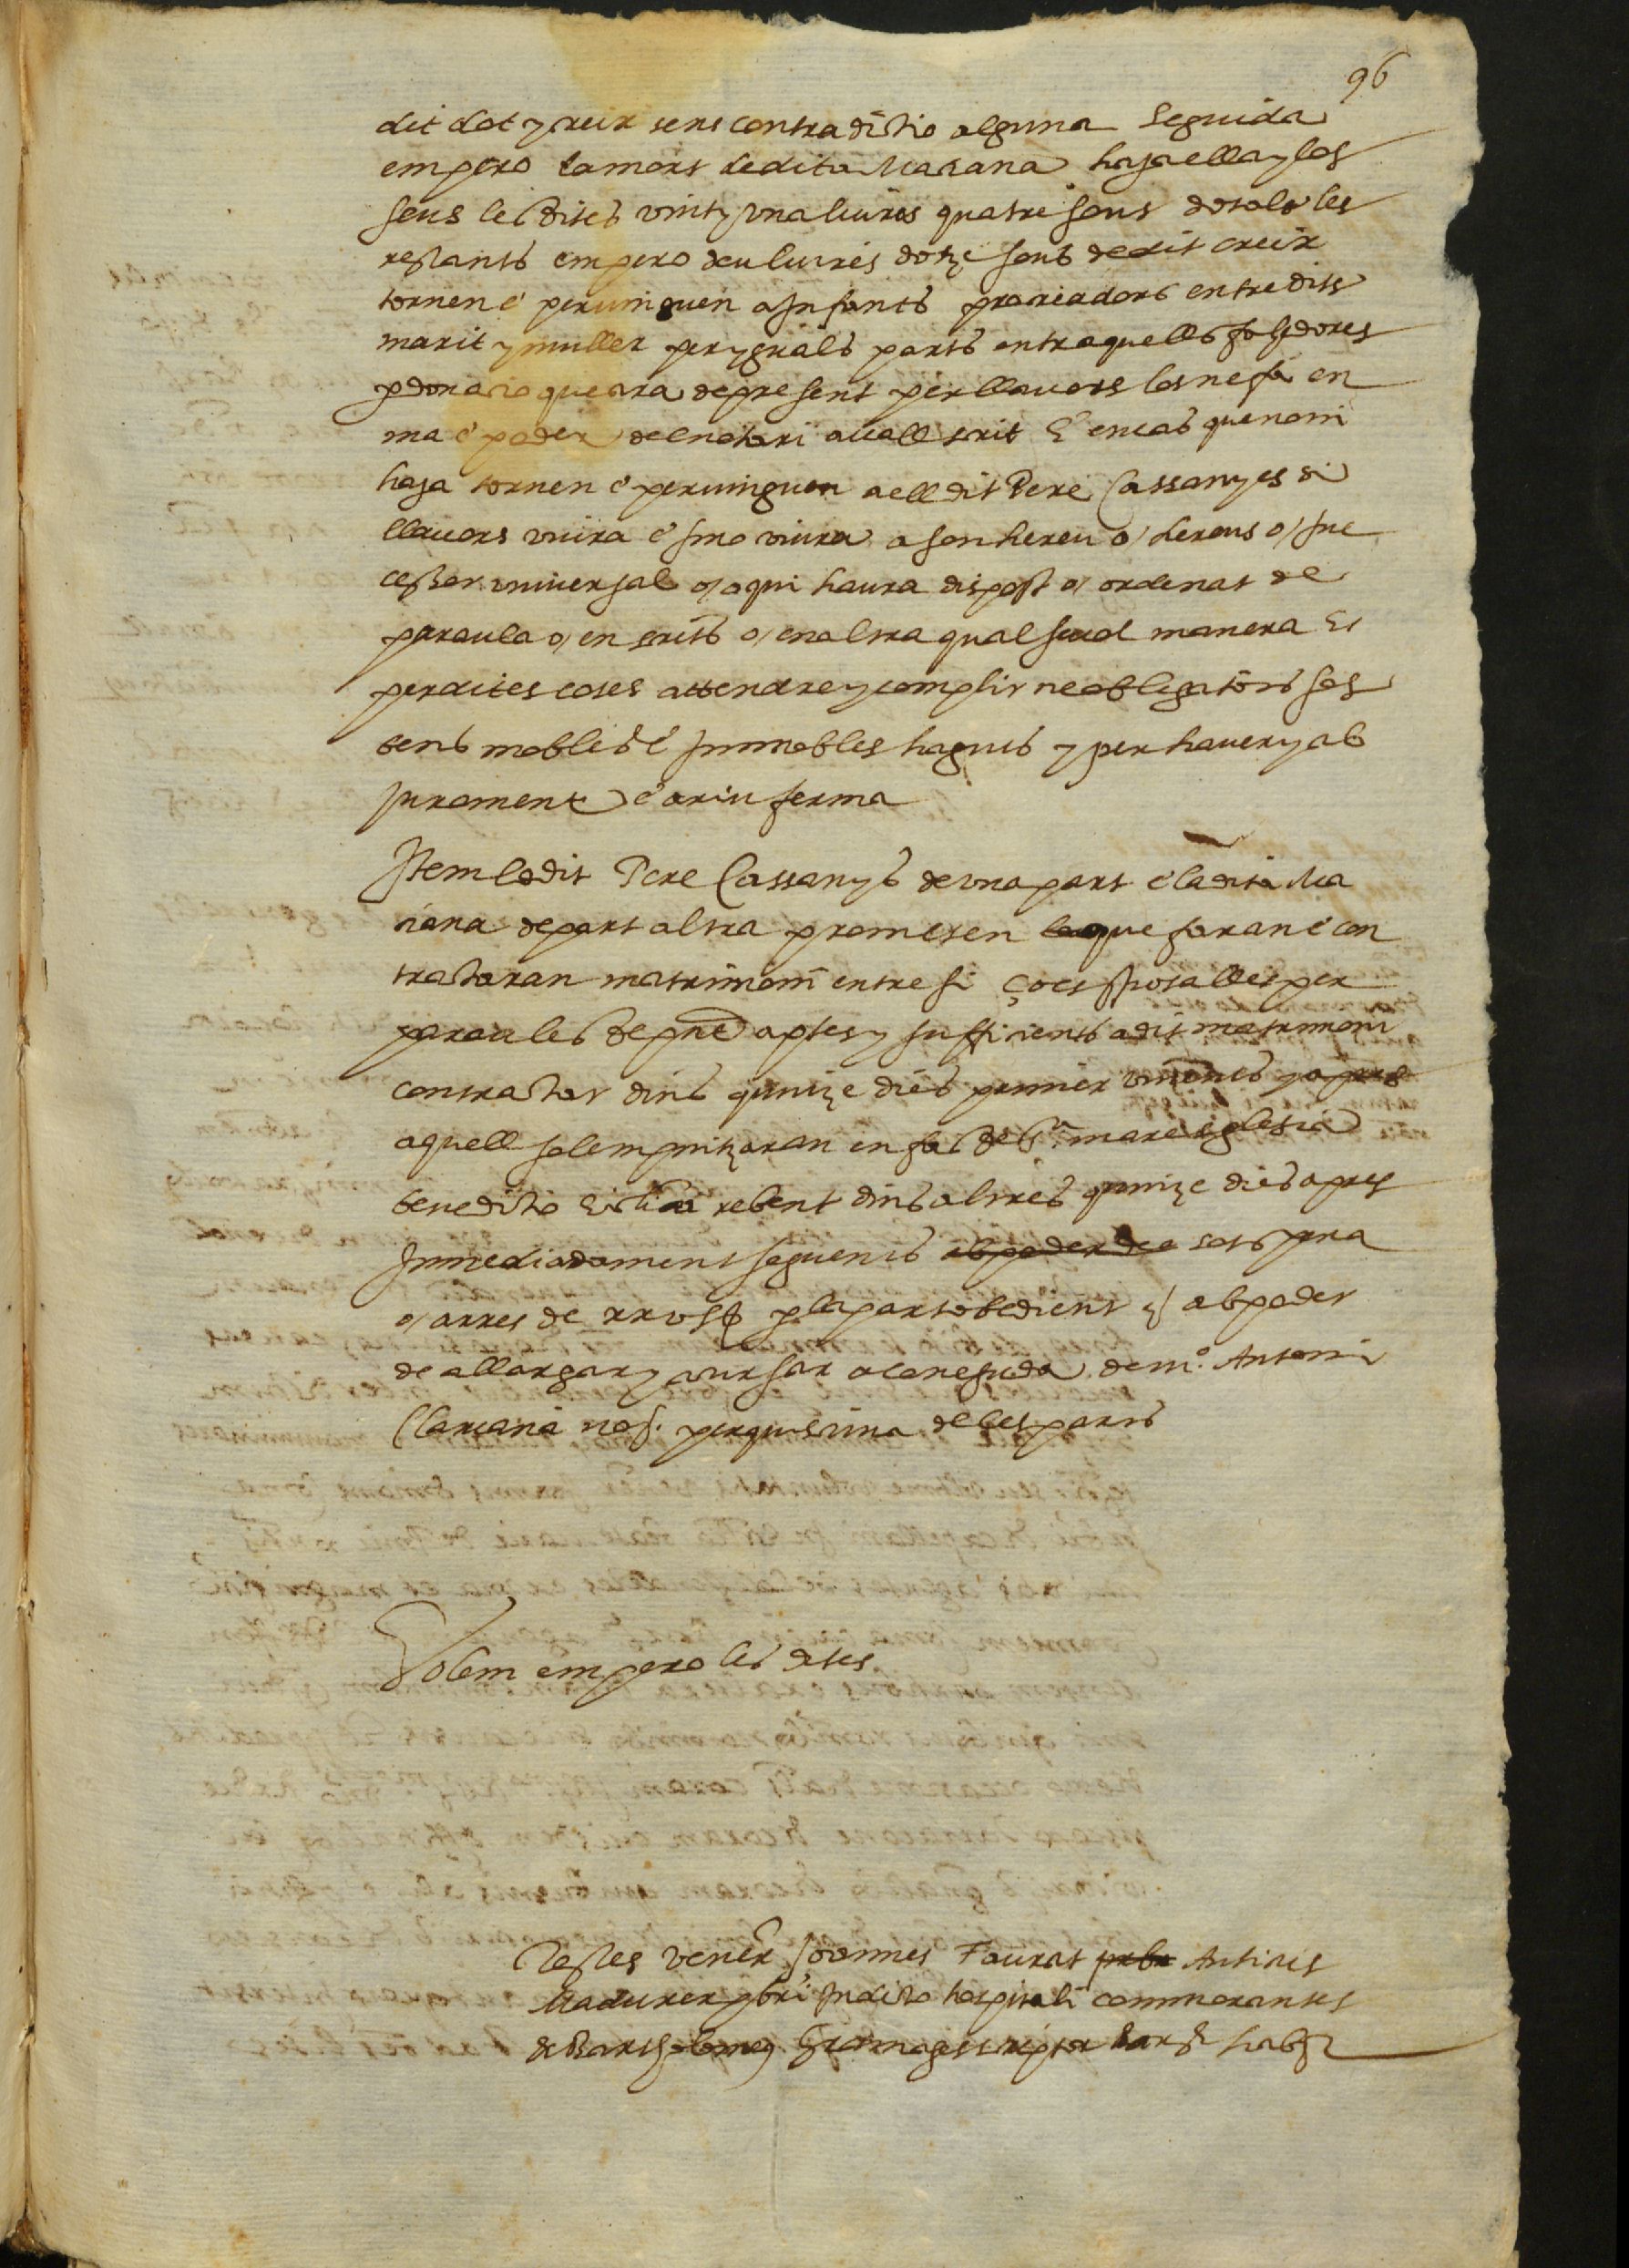 96
dit dot y creix sens contradictio alguna Seguida
empero la mort de dita Mariana haja ella y los
seus les dites vint y una liures quatre sous dotals les
restants empero deu liures dotze sous de dit creix
tornen e pervinguen a Infants procreadors entre dits
marit y muller per yguals parts entre aquells fahedores
p donatio que ara de present per llavors los ne fa en
ma e poder del notari avall scrit E encas que noni
haja tornen e pervinguen a ell dit Pere Cassanyes si
llavors viura e sino viura a son hereu o/ hereus o/ suc
cessor universal o/ a qui haura dispost o/ ordenat de
paraula o/ en scrits o/ en altra qualsevol manera Et
per dites coses attendre y complir ne obliga tots sos
bens mobles e Immobles haguts y per haver y ab
Jurament e ariu ferma
Item lo dit Pere Cassanyes de una part e la dita Ma
riana de part altra prometen que faran e con
tractaran matrimoni entre si ço es sposalles per
paraules de pnt aptes y sufficients a dit matrimoni
contractar dins quinze dies primer vinents y apres
aquell solempnitzaran en fas de Sta mare iglesia
benedictio rebent dins altres quinze dies apres
Immediadament seguents ab poder de sots pena
o/ arres de xxv ll p la part obedient ab poder
de allargar y scursar a coneguda de mo. Antoni
not. per quiscuna de les parts
Volem empero les dites
Testes vener Joannes Faurat prbr Antius
Madurer pbri In dicto hospitali commorantes
& Bartholomeus scriptor Barne habr